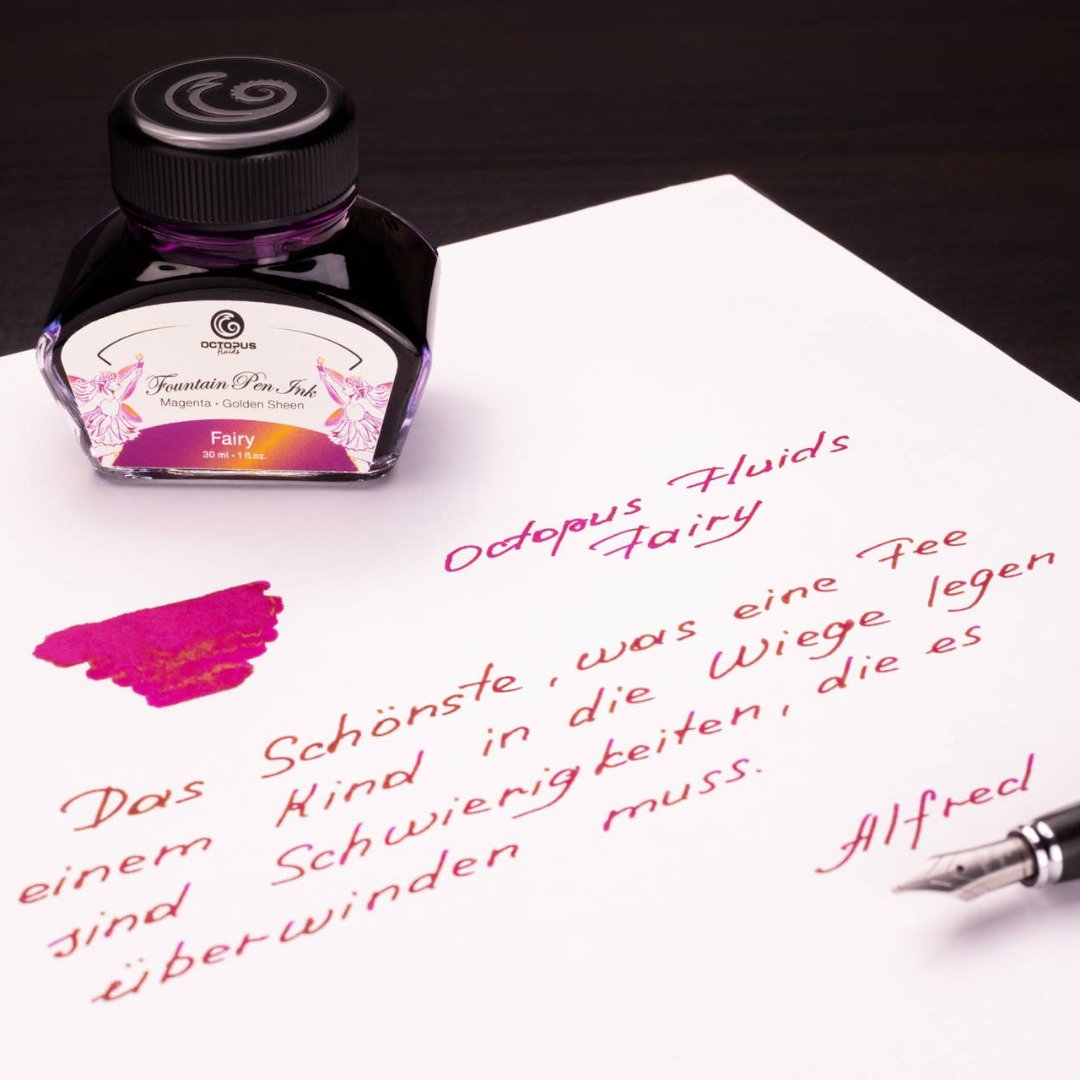 OCTOPUS
fluids
Fountain Pen Ink
Magenta • Golden Sheen
Fairy
30 ml • 1 fl.oz.
Octopus Fluids
Fairy
Das Schönste, was eine Fee
einem Kind in die Wiege legen
sind Schwierigkeiten, die es
überwinden muss.
Alfred